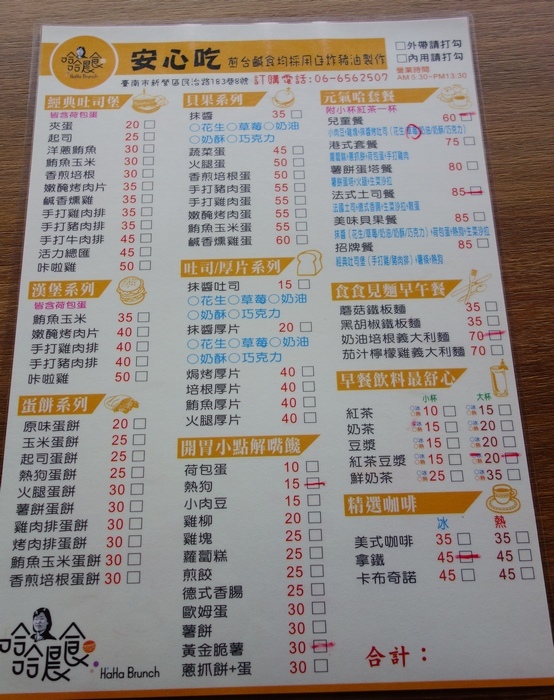 哈哈晨食
HaHa Brunch
安心吃 煎台鹹食均採用自炸豬油製作
□外帶請打勾
□內用請打勾
營業時間
AM 5:30~PM13:30
臺南市新營區民治路183巷8號 訂購電話:06-6562507
經典吐司堡
皆含荷包蛋
夾蛋 20 □
起司 25 □
洋蔥鮪魚 30 □
鮪魚玉米 30 □
香煎培根 30 □
嫩醃烤肉片 35 □
鹹香燻雞 35 □
手打雞肉排 35 □
手打豬肉排 35 □
手打牛肉排 45 □
活力總匯 45 □
咔啦雞 50 □
漢堡系列
皆含荷包蛋
鮪魚玉米 35 □
嫩醃烤肉片 40 □
手打雞肉排 40 □
手打豬肉排 40 □
咔啦雞 50 □
蛋餅系列
原味蛋餅 20 □
玉米蛋餅 25 □
起司蛋餅 25 □
熱狗蛋餅 25 □
火腿蛋餅 30 □
薯餅蛋餅 30 □
雞肉排蛋餅 30 □
烤肉排蛋餅 30 □
鮪魚玉米蛋餅 30 □
香煎培根蛋餅 30 □
哈哈晨食
HaHa Brunch
貝果系列
抹醬 35 □
○花生○草莓○奶油
○奶酥○巧克力
蔬菜蛋 45 □
火腿蛋 50 □
香煎培根蛋 50 □
手打豬肉蛋 55 □
手打雞肉蛋 55 □
嫩醃烤肉蛋 55 □
鮪魚玉米蛋 55 □
鹹香燻雞蛋 60 □
吐司/厚片系列
抹醬吐司 15 □
○花生○草莓○奶油
○奶酥○巧克力
抹醬厚片 20 □
○花生○草莓○奶油
○奶酥○巧克力
焗烤厚片 40 □
培根厚片 40 □
鮪魚厚片 40 □
火腿厚片 40 □
開胃小點解嘴饞
荷包蛋 10 □
熱狗 15 □
小肉豆 15 □
雞柳 20 □
雞塊 25 □
蘿蔔糕 25 □
煎餃 25 □
德式香腸 25 □
歐姆蛋 30 □
薯餅 30 □
黃金脆薯 30 □
蔥抓餅+蛋 30 □
元氣哈套餐
附小杯紅茶一杯
兒童餐 60 □
港式套餐 75 □
蘿蔔糕+蔥抓餅+荷包蛋+手打雞肉
薯餅蛋塔餐 80 □
薯餅蛋塔+火腿+生菜沙拉
法式土司餐 85 □
美味貝果餐 85 □
招牌餐 85 □
經典吐司堡(手打雞/豬肉排)+薯條+熱狗
食食見麵早午餐
蘑菇鐵板麵 35 □
黑胡椒鐵板麵 35 □
奶油培根義大利麵 70 □
茄汁檸檬雞義大利麵 70 □
早餐飲料最舒心
小杯 大杯
紅茶 10 □ 15 □
奶茶 15 □ 20 □
豆漿 15 □ 20 □
紅茶豆漿 15 □ 20 □
鮮奶茶 25 □ 35 □
精選咖啡
冰 熱
美式咖啡 35 □ 35 □
拿鐵 45 □ 45 □
卡布奇諾 45 □ 45 □
合計：